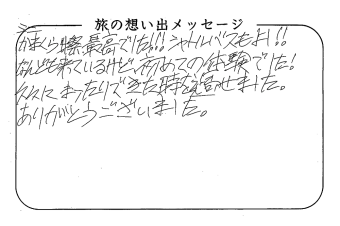 旅の想い出メッセージ
かまくら祭最高でした!!! シャトルバスもよい!!
なんども来ているけど、初めての体験でした!
久々にまったりできた時を過せました。
ありがとうございました。